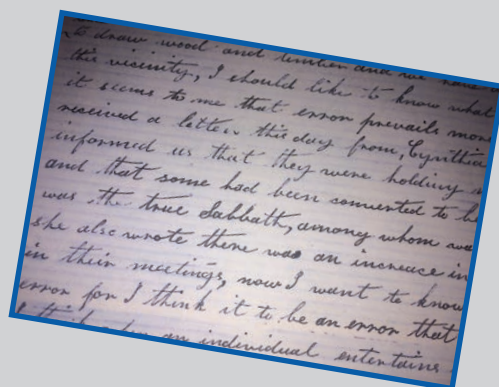 to draw wood and timber and we have
this vicinity, I should like to know what
it seems to me that error prevails more
received a letter this day from, Cynthia
informed us that they were holding
and that some had been converted to
was the true Sabbath, among whom was
she also wrote there was an increase in
in their meetings, now I want to know
error for I think it to be an error that
an individual entertains